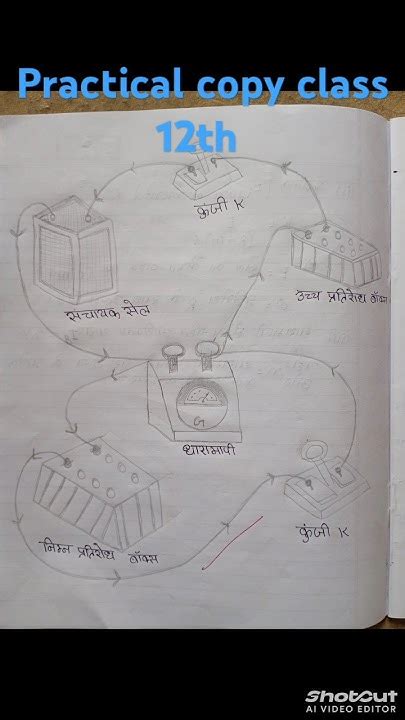 Practical copy class
12th
कुंजी K
उच्च प्रतिरोध बॉक्स
संचायक सेल
G
धारामापी
कुंजी K
निम्न प्रतिरोध बॉक्स
ShotCut
AI VIDEO EDITOR